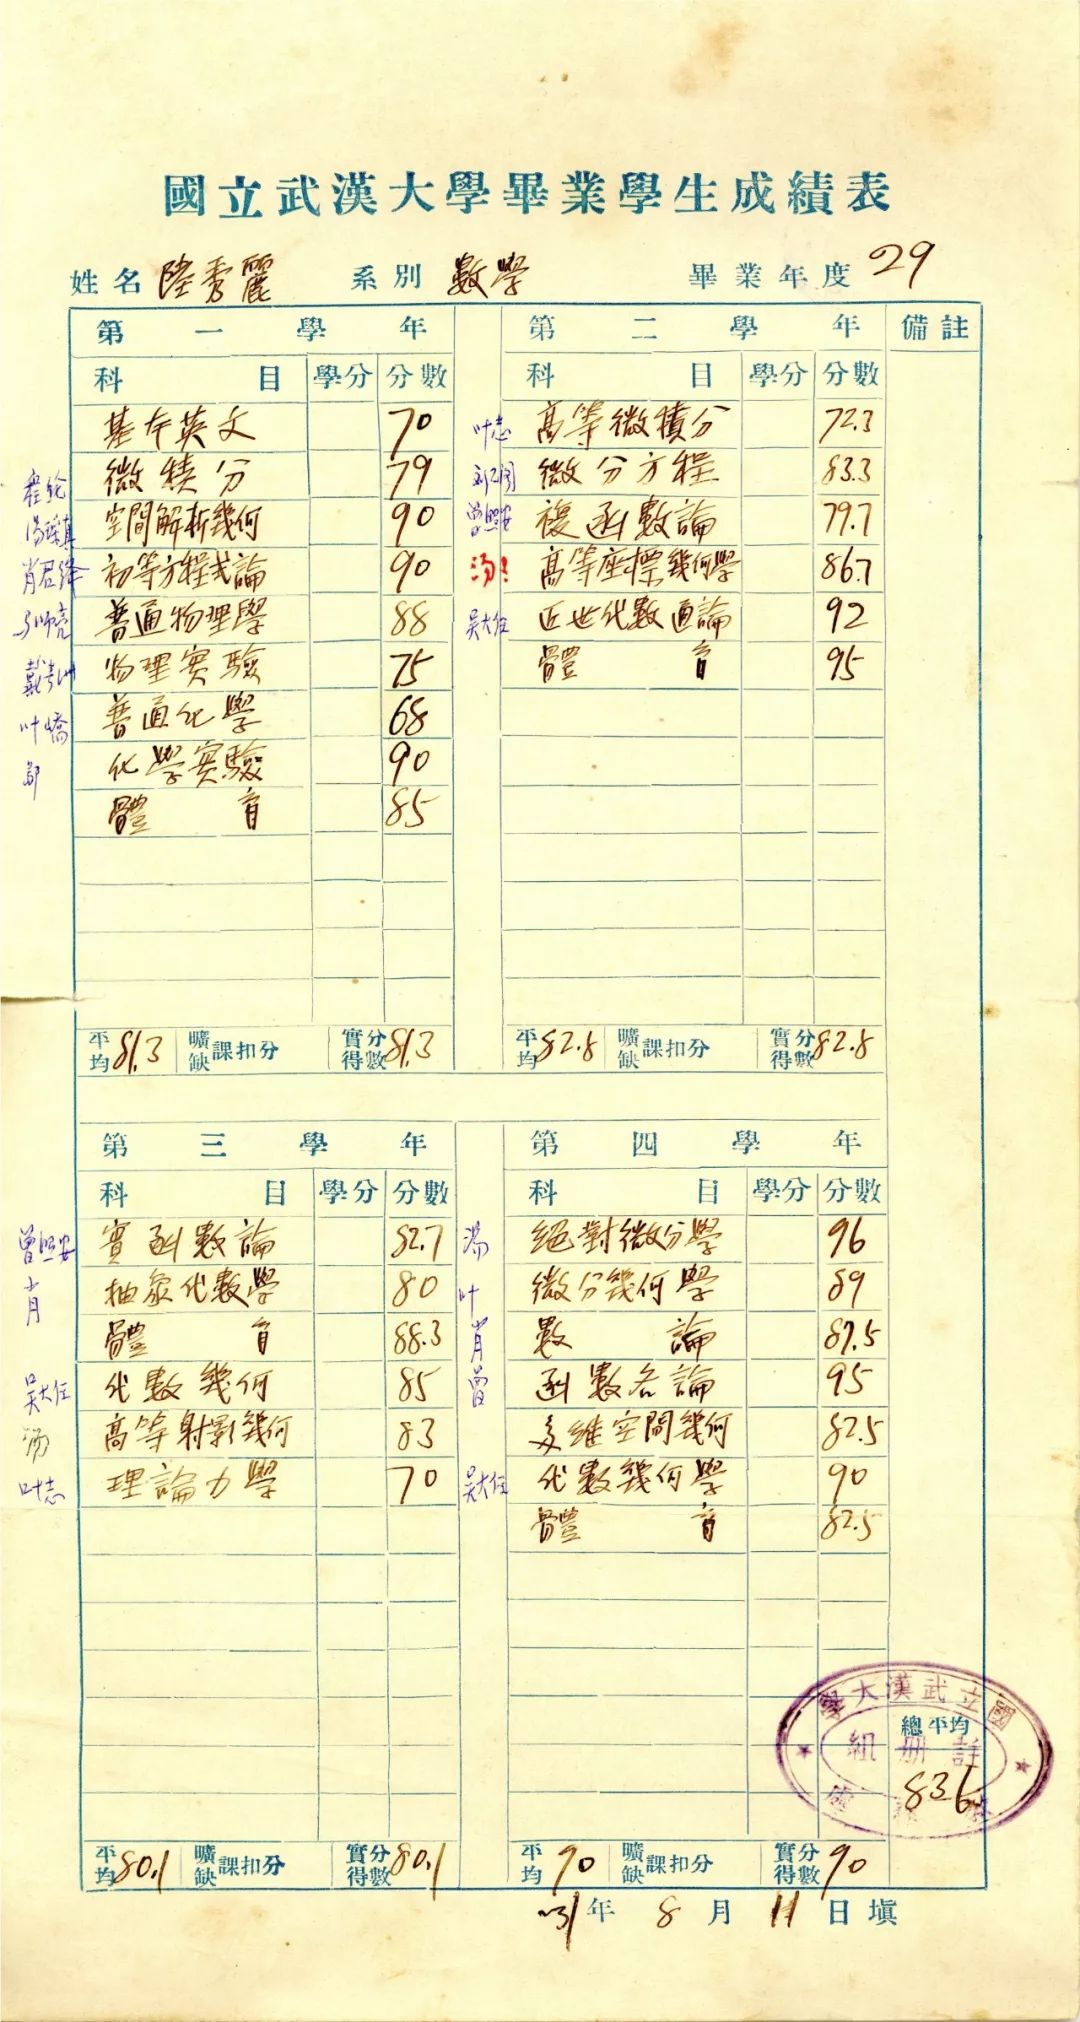 國立武漢大學畢業學生成績表
姓名 陸秀麗 系別 數學 畢業年度 29
第一學年
科目 學分 分數
基本英文 70
微積分 79
程纶
空間解析幾何 90
汤璪真
初等方程式論 90
肖君绛
普通物理學 88
物理實驗 75
普通化學 68
叶峤
化學實驗 90
體育 85
平均 81.3 曠缺課扣分 實得分數 81.3
第二學年 備註
科目 學分 分數
叶志 高等微積分 72.3
微分方程 83.3
曾照安 複函數論 79.7
汤 高等座標幾何學 86.7
吴大任 近世代數通論 92
體育 95
平均 82.8 曠缺課扣分 實得分數 82.8
第三學年
科目 學分 分數
曾照安 實函數論 82.7
肖 抽象代數學 80
體育 88.3
吴大任 代數幾何 85
汤 高等射影幾何 83
叶志 理論力學 70
平均 80.1 曠缺課扣分 實得分數 80.1
第四學年
科目 學分 分數
汤 絕對微分學 96
叶 微分幾何學 89
肖 數論 87.5
曾 函數各論 95
多維空間幾何 82.5
吴大任 代數幾何學 90
體育 82.5
平均 90 曠缺課扣分 實得分數 90
國立武漢大學
註冊組
總平均
83.6
31年8月11日填